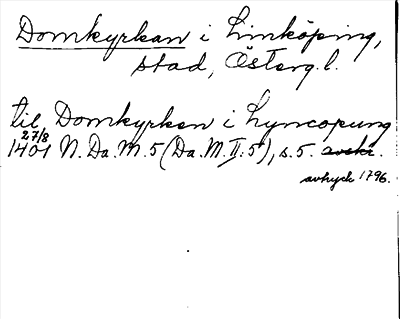 Domkyrkan i Linköping,
stad, Österg. l.
til Domkyrken i Lyncopung
27/8
1401 N. Da. M. 5 (Da. M. II: 5), s. 5. avskr.
avtryck 1796.